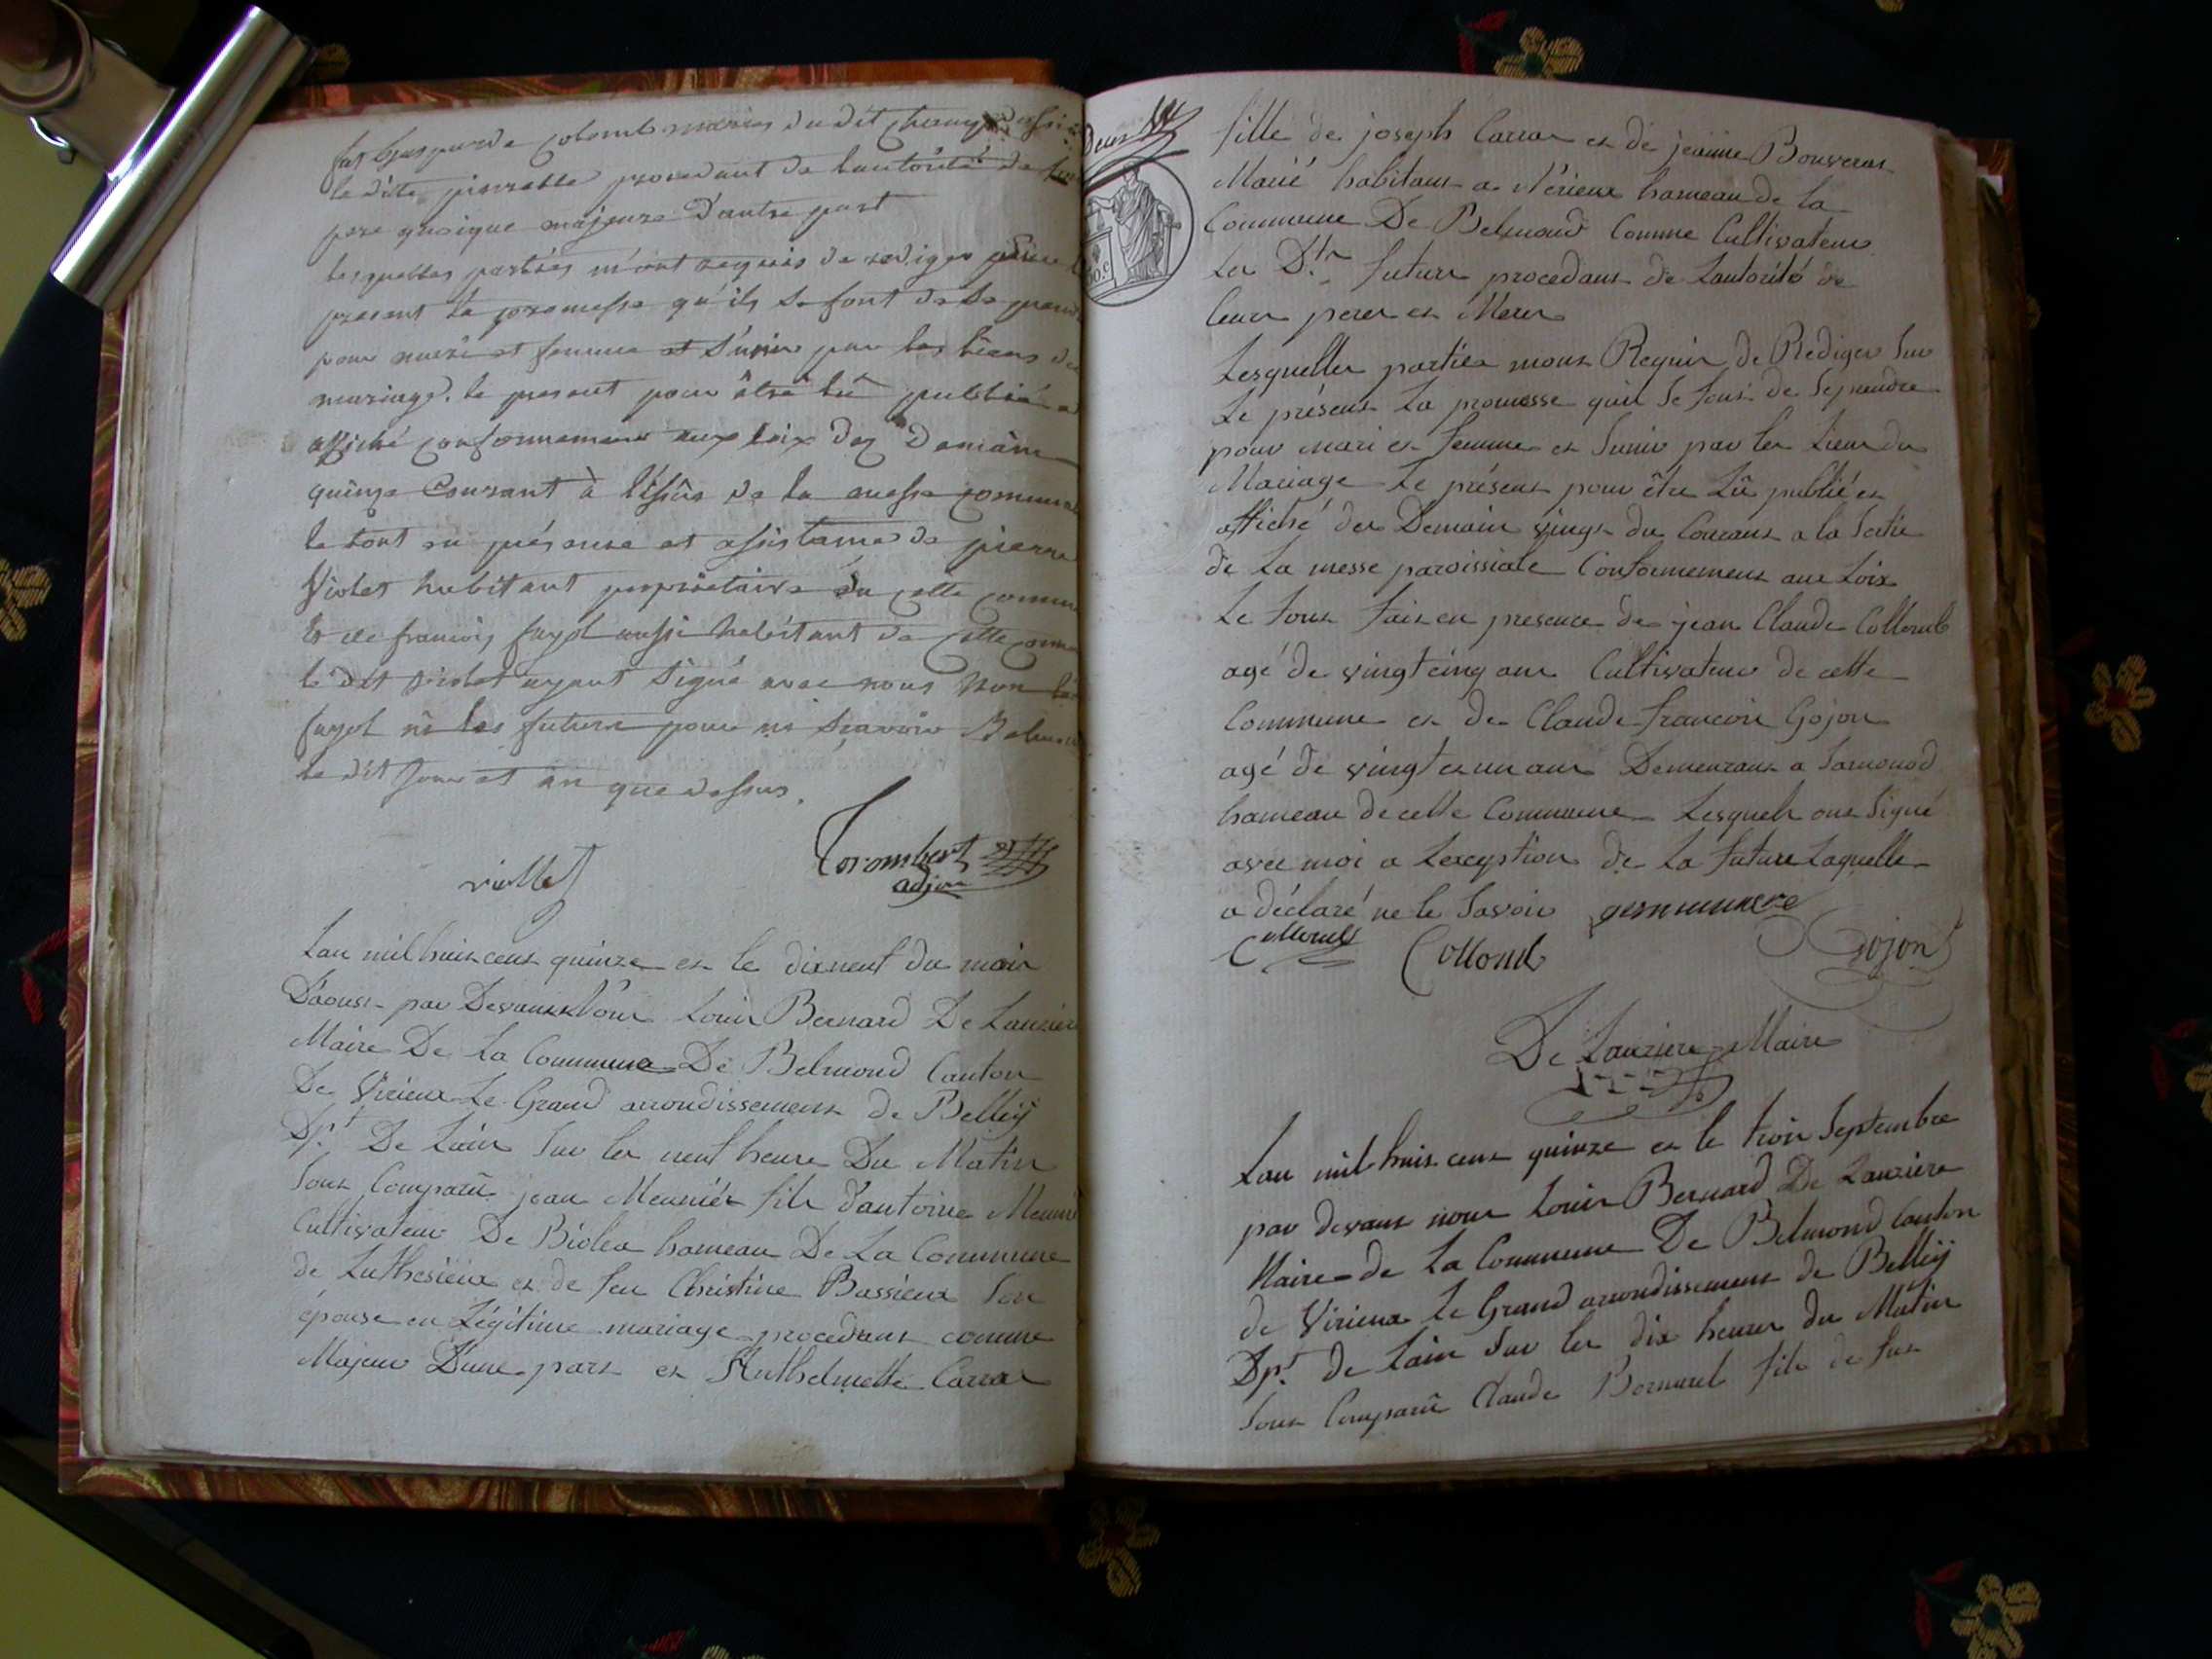 le dite pierrette procedant de lautorité de
pere quoique majeure d'autre part
lesquelles parties m'ont requis de rediger
present la promesse qu'ils se font de se prend
pour mari et femme et s'unir par les liens d
mariage. le present pour être lû publié
affiché conformement aux loix dez Demain
quinze Courant à l'issûe de la messe
le tout en présence et assistance de pierre
Violet habitant proprietaire de cette commu
et de francois fayol aussi habitant de cette comm
le dit violet ayant signé avec nous Non
fayol ni les futurs pour ne sçavoir Belmo
le dit jour et an que dessus.
Corombert
adjoint
viollet
Lan mil huit cent quinze et le dixneuf du mois
D'aoust par Devant Nous Louis Bernard De Lauzier
Maire De La Commune De Belmond Canton
De Virieux Le Grand arrondissement de Belley
Dpt. De Lain Sur les neuf heure Du Matin
Sont Comparu jean Meunier fils d'antoine Meuni
Cultivateur De Biolea hameau De La Commune
de Luthesieux et de feu Christine Bassieux Son
épouse en Légitime mariage procedant comme
Majeur D'une part et Anthelmette Carra
Deux
fille de joseph Carra et de jeanne Bouveras
Marié habitant a Nérieux hameau de la
Commune De Belmond Comme Cultivateur
Les Dts. future procedant de Lautorité de
leurs peres et Meres
Lesquelles parties mont Requis de Rediger Sur
Le présent La promesse quil Se font de Seprendre
pour mari et femme et Sunir par les Liens du
Mariage Le présent pour être Lû publié et
affiché des Demain vingt du Courant a la Sortie
de La messe paroissiale Conformement aux Loix
Le Tout fait en presence de jean Claude Collomb
agé de vingt cinq ans Cultivateur de cette
Commune et de Claude francois Gojon
agé de vingt et un ans Demeurant a Samonod
hameau de cette Commune Lesquels ont Signé
avec moi a Lexception de La future Laquelle
a déclaré ne le Savoir
Collomb Collomb Gojon
De Lauziere Maire
Lan mil huit cent quinze et le trois Septembre
par devant nous Louis Bernard De Lauziere
Maire de La Commune De Belmond Canton
de Virieux Le Grand arrondissement de Belley
Dpt. de Lain Sur les dix heures du Matin
Sont Comparu Claude fils de